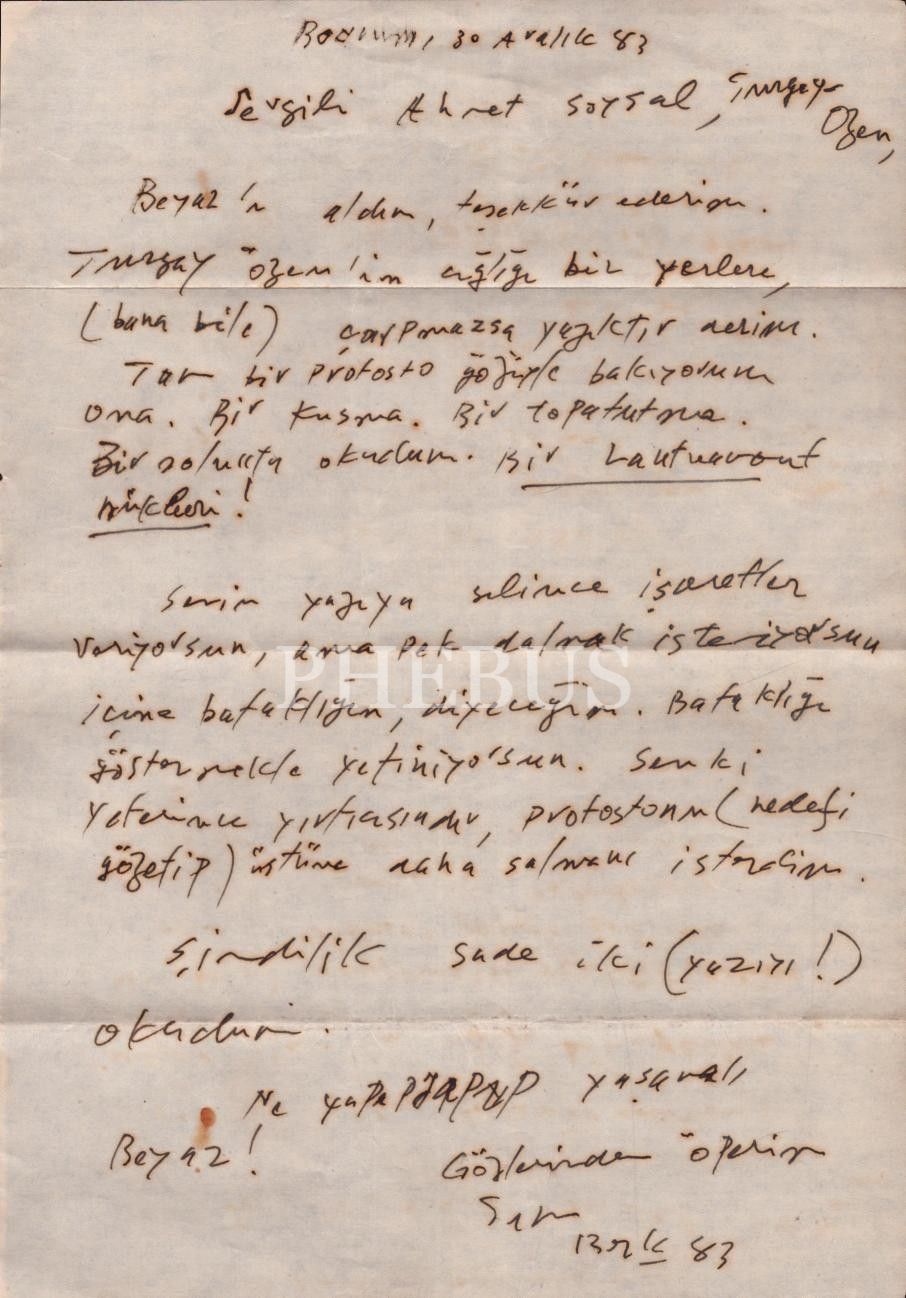 Bodrum, 30 Aralık 83
Sevgili Ahmet Soysal, Turgay
Özen,
Beyaz'ı aldım, teşekkür ederim.
Turgay Özen'in çığlığı bir yerlere,
(bana bile) çarpmazsa yazıktır derim.
Tam bir protosto gözüyle bakıyorum
ona. Bir kusma. Bir topatutma.
Bir solukta okudum. Bir Lautreamont
!
Senin yazıya gelince işaretler
veriyorsun, ama pek dalmak istemiyorsun
içine bataklığın, diyeceğim. Bataklığı
göstermekle yetiniyorsun. Sen ki
yeterince yırtıcısındır, protostonu (hedefi
gözetip) üstüne daha salmanı isterdim.
Şimdilik sade iki (yazıyı!)
okudum.
Ne yapıp yapıp yaşamalı
Beyaz!
Gözlerinden öperim
Berk 83
PHEBUS